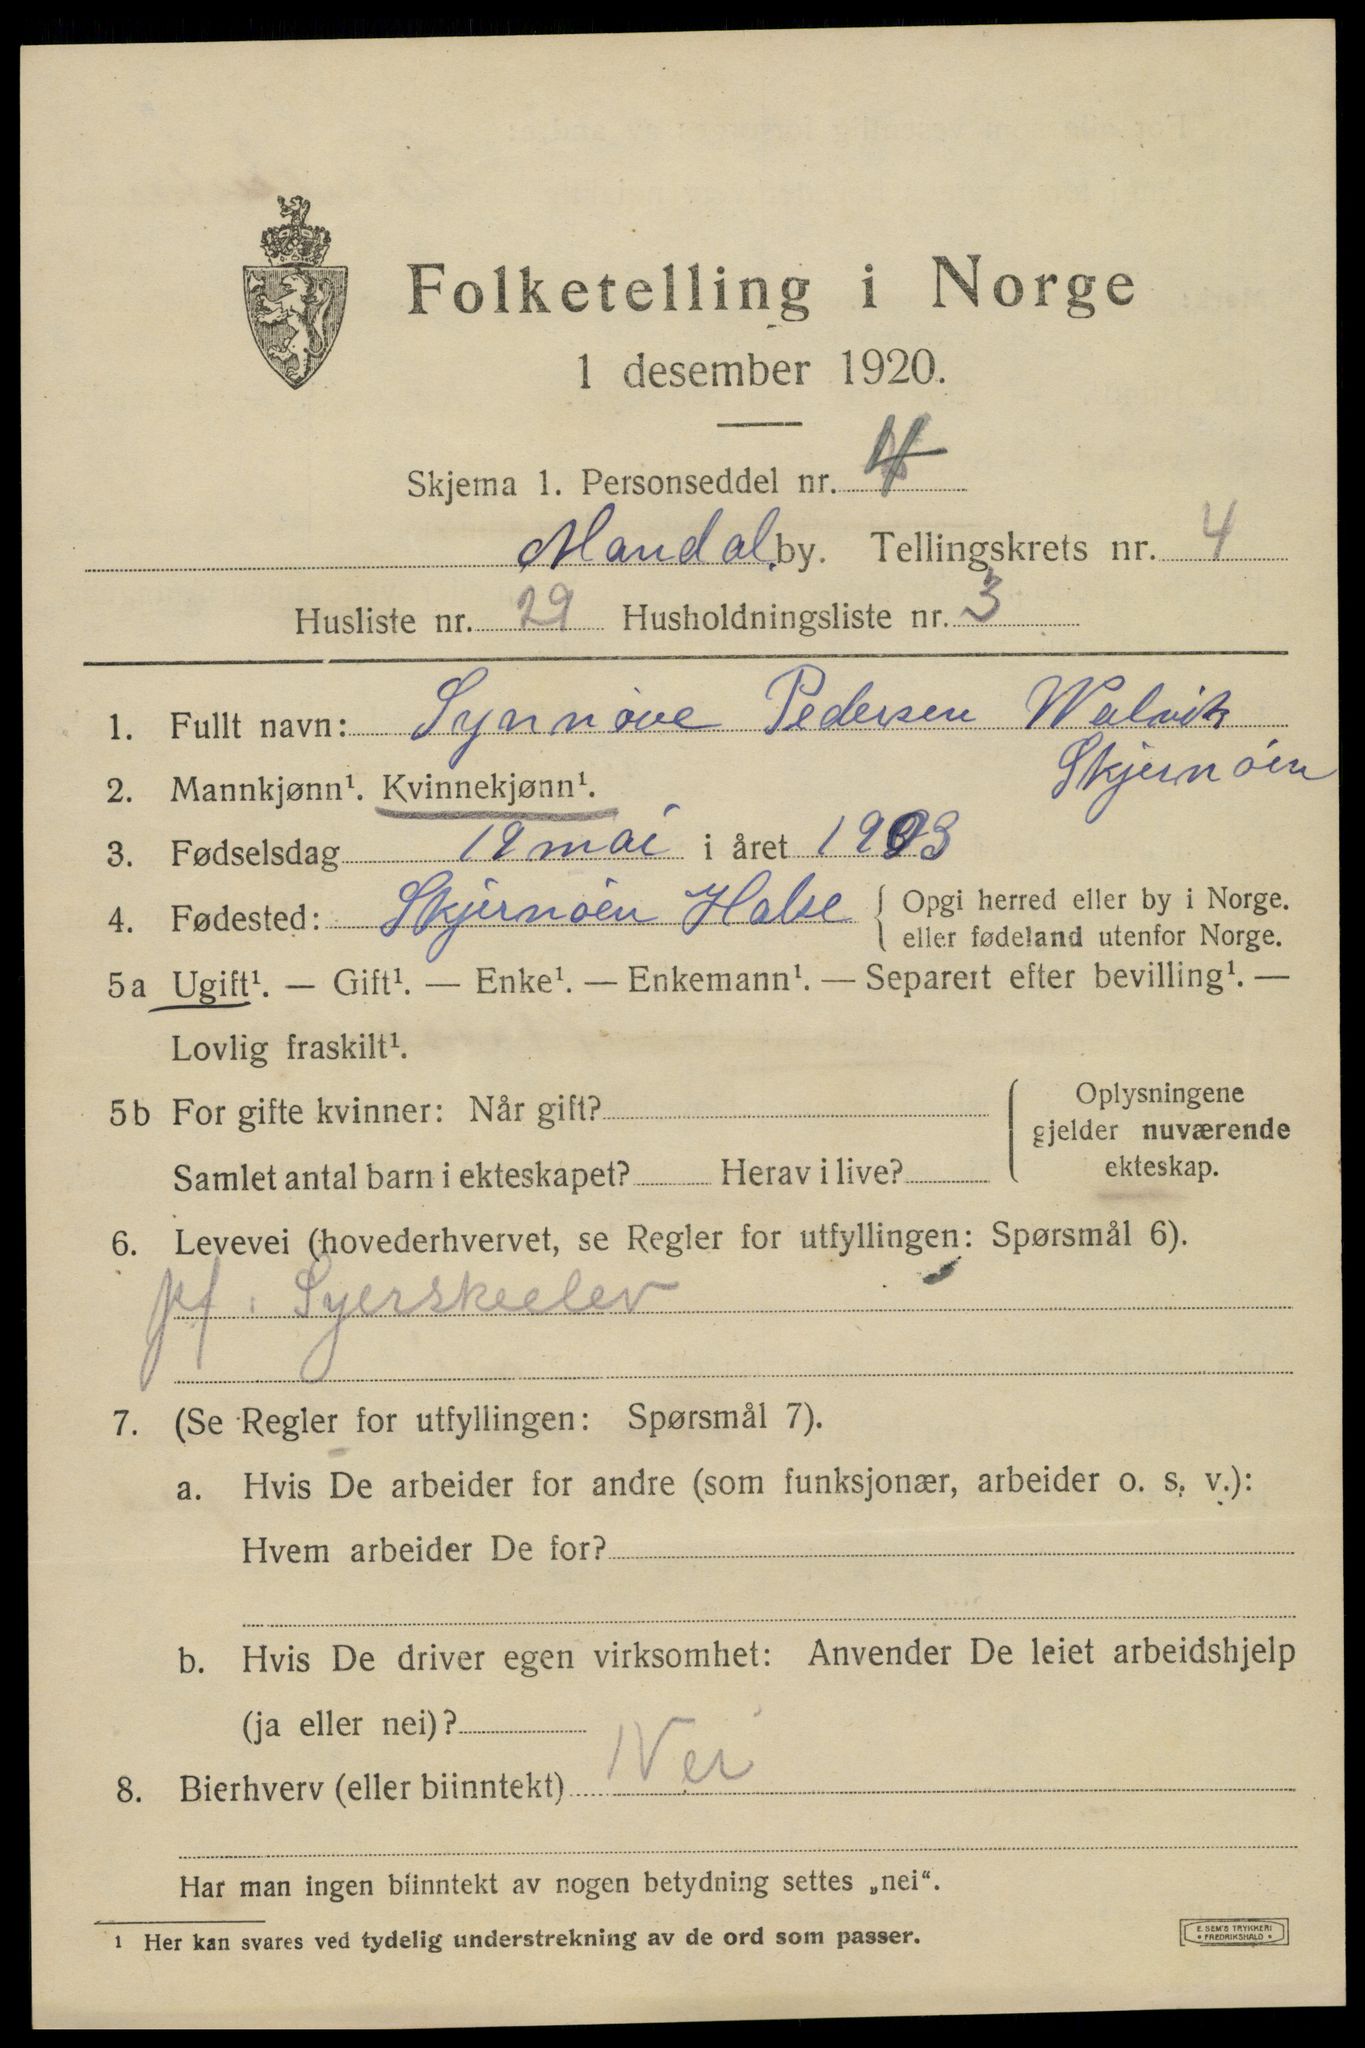 Folketelling i Norge
1 desember 1920.
Skjema 1. Personseddel nr. 4
Mandal by. Tellingskrets nr. 4
Husliste nr. 29 Husholdningsliste nr. 3
1. Fullt navn: Synnöve Pedersen Walvik
Skjernöen
2. Mannkjønn¹. Kvinnekjønn¹.
3. Fødselsdag 19 mai i året 1903
4. Fødested: Skjernöen Halse { Opgi herred eller by i Norge.
eller fødeland utenfor Norge.
5a Ugift¹. — Gift¹. — Enke¹. — Enkemann¹. — Separert efter bevilling¹. —
Lovlig fraskilt¹.
5b For gifte kvinner: Når gift?
Samlet antal barn i ekteskapet? Herav i live?
Oplysningene
gjelder nuværende
ekteskap.
6. Levevei (hovederhvervet, se Regler for utfyllingen: Spørsmål 6).
pf. Syerskeelev
7. (Se Regler for utfyllingen: Spørsmål 7).
a. Hvis De arbeider for andre (som funksjonær, arbeider o. s. v.):
Hvem arbeider De for?
b. Hvis De driver egen virksomhet: Anvender De leiet arbeidshjelp
(ja eller nei)?
8. Bierhverv (eller biinntekt) Nei
Har man ingen biinntekt av nogen betydning settes „nei“.
1 Her kan svares ved tydelig understrekning av de ord som passer.
E. SEM'S TRYKKERI
• FREDRIKSHALD •